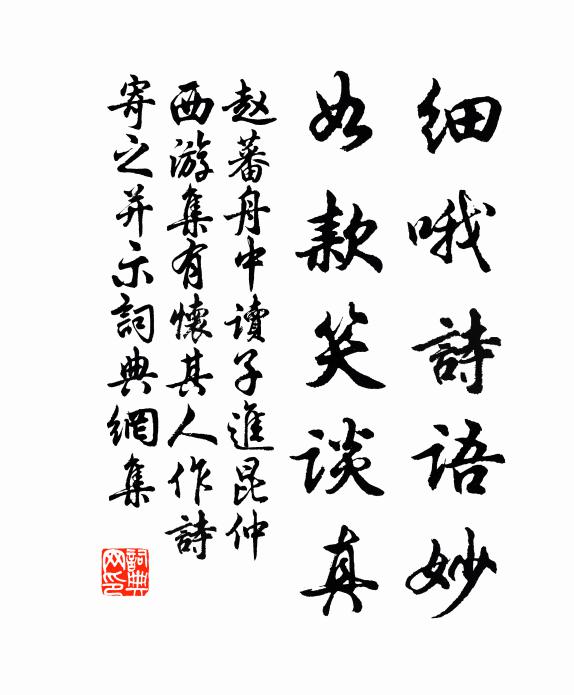 细哦詩语妙
如款笑谈真
赵蕃舟中读子進昆仲
西游集有懷其人作詩
寄之并示詞典網集
詞典网印